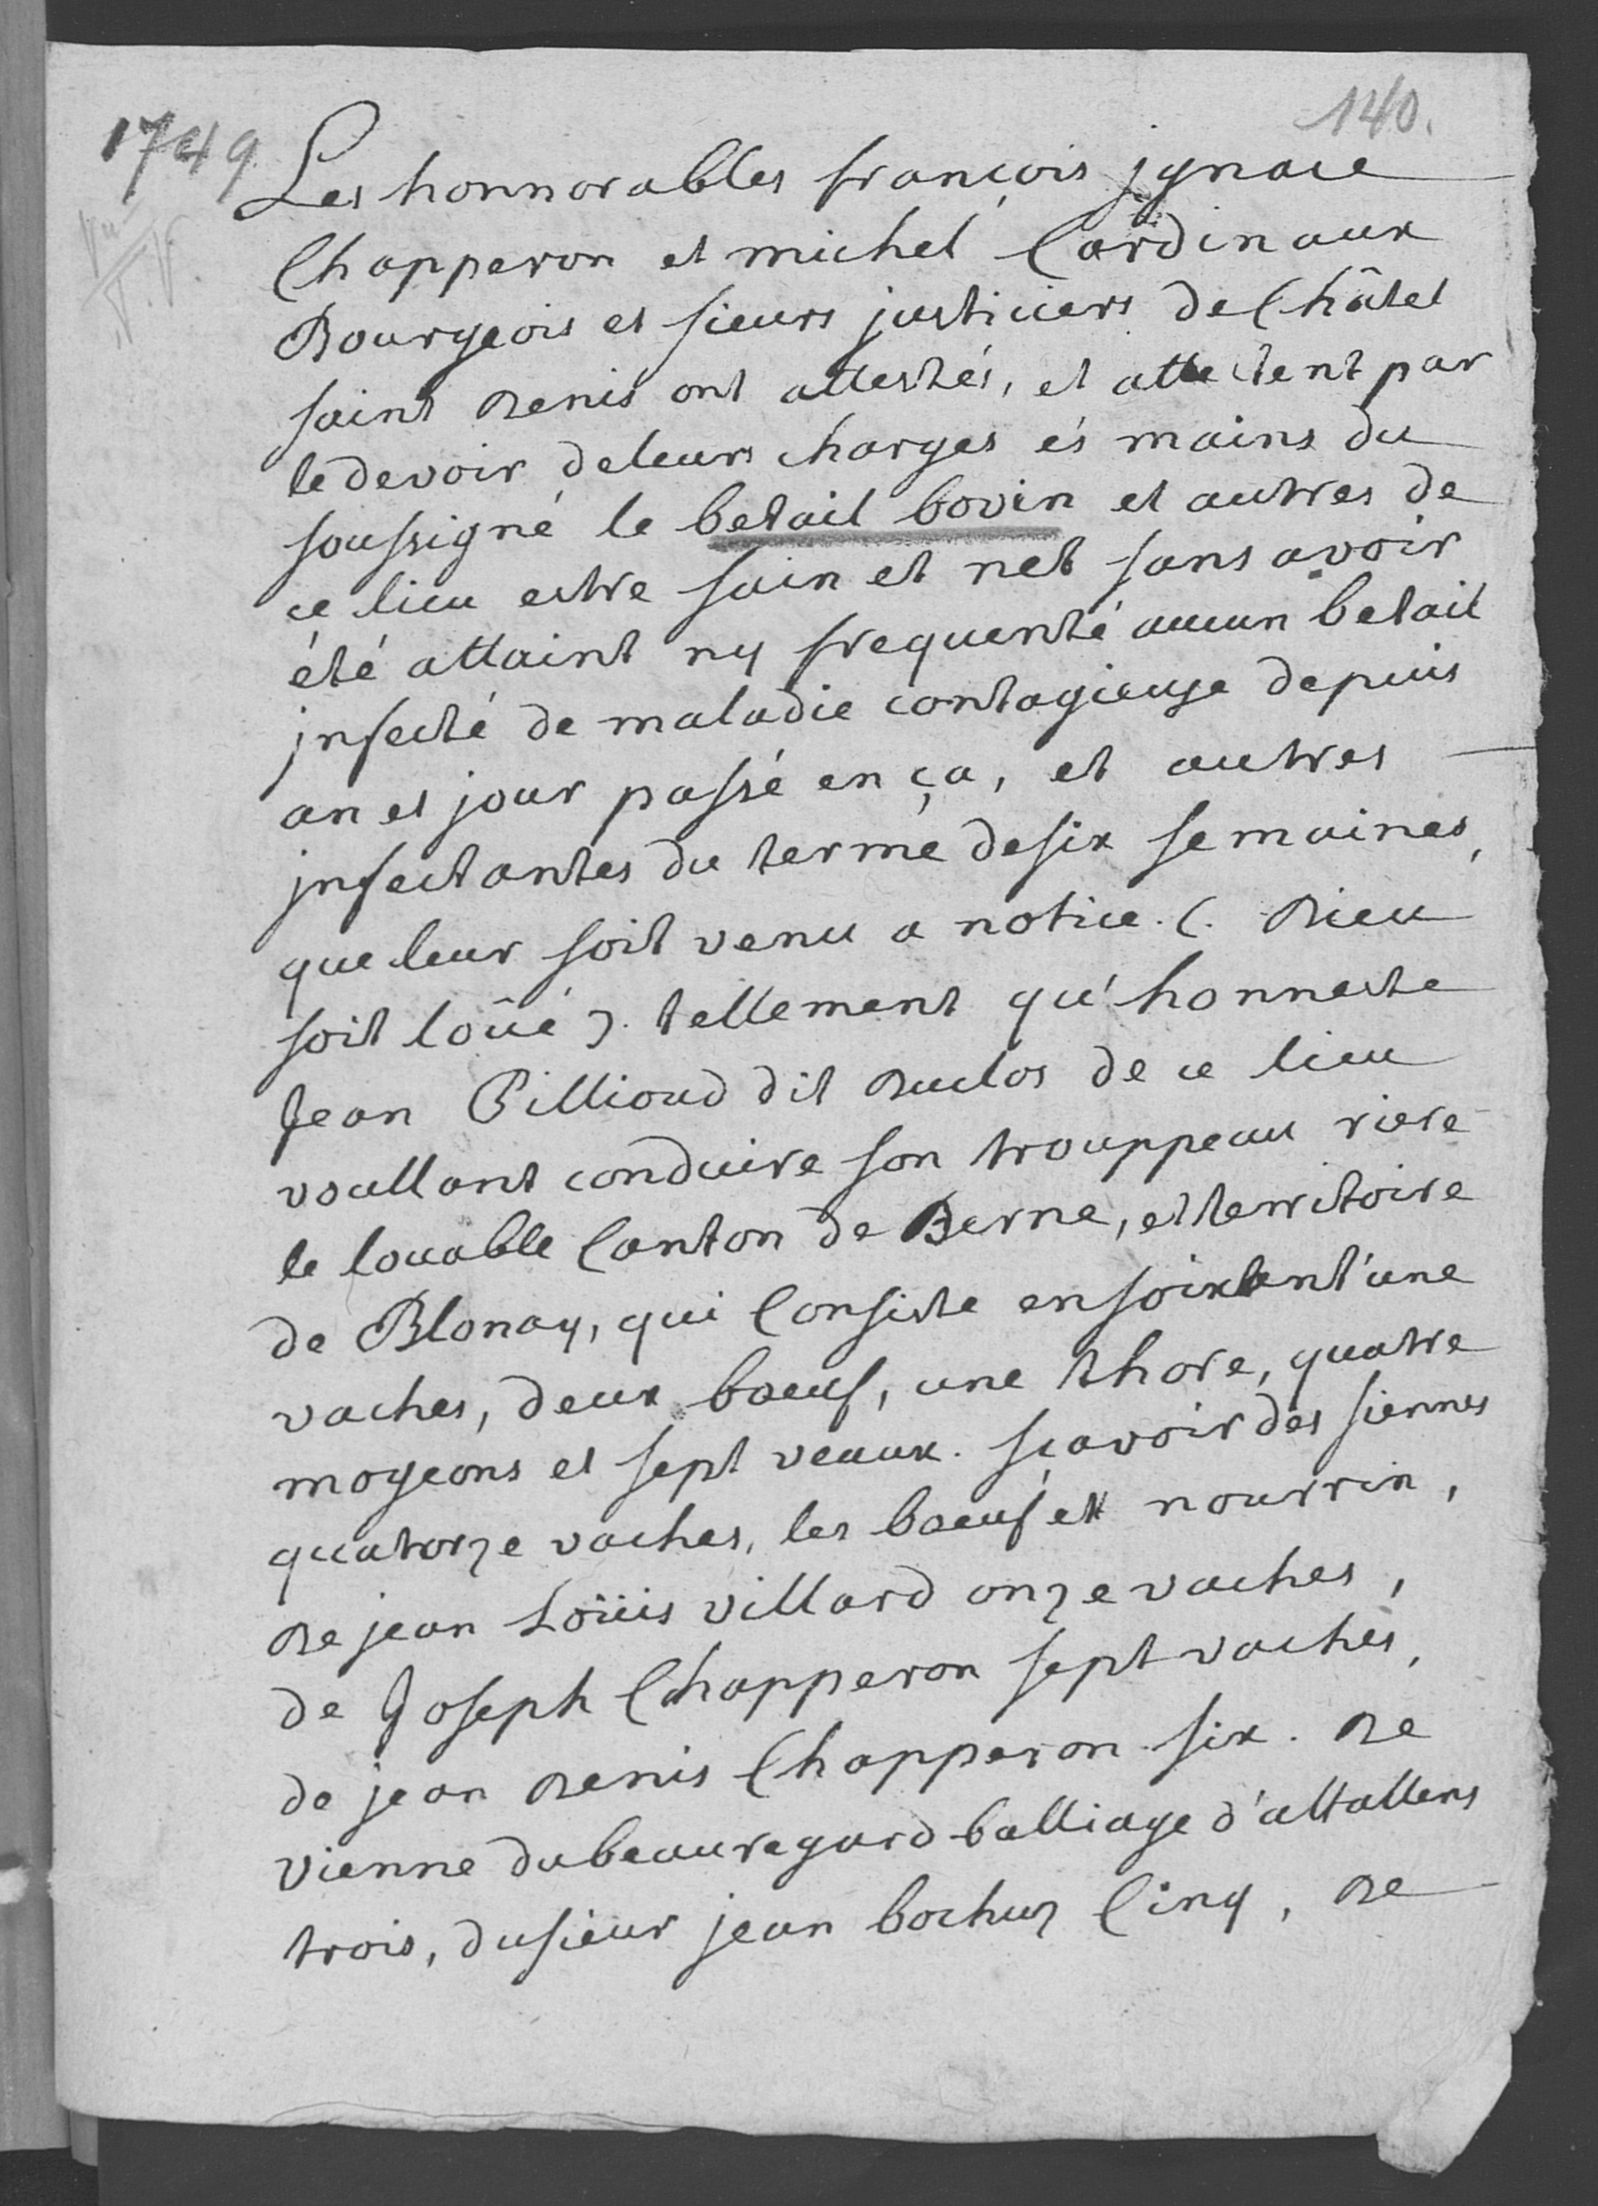 140.
1749
Les honnorables françois jgnace
Chapperon et michel Cardinaux
Bourgeois et sieurs justiciers de Châtel
saint Denis ont attestés, et attestent par
le devoir de leurs charges és mains du
soussigné le betail bovin et autres de
ce lieu estre sain et net sans avoir
été attaint ny frequenté aucun betail
jnfecté de maladie contagieuse depuis
an et jour passé en ça, et autres
jnfectantes du terme de six semaines,
que leur soit venu a notice. (. Dieu
soit loüé ). tellement qu'honneste
Jean Pillioud dit Duclos de ce lieu
voullant conduire son trouppeau riere
le louable Canton de Berne, et territoire
de Blonay, qui Consiste en soixant'une
vaches, deux boeuf, une thore, quatre
mogeons et sept veaux. sçavoir des siennes
quatorze vaches, les boeuf et nourrin,
De jean Loüis villard onze vaches,
de Joseph Chapperon sept vaches,
de jean Denis Chapperon six. De
vienne du beauregard balliage d'attallens
trois, du sieur jean bochuz Cinq, De